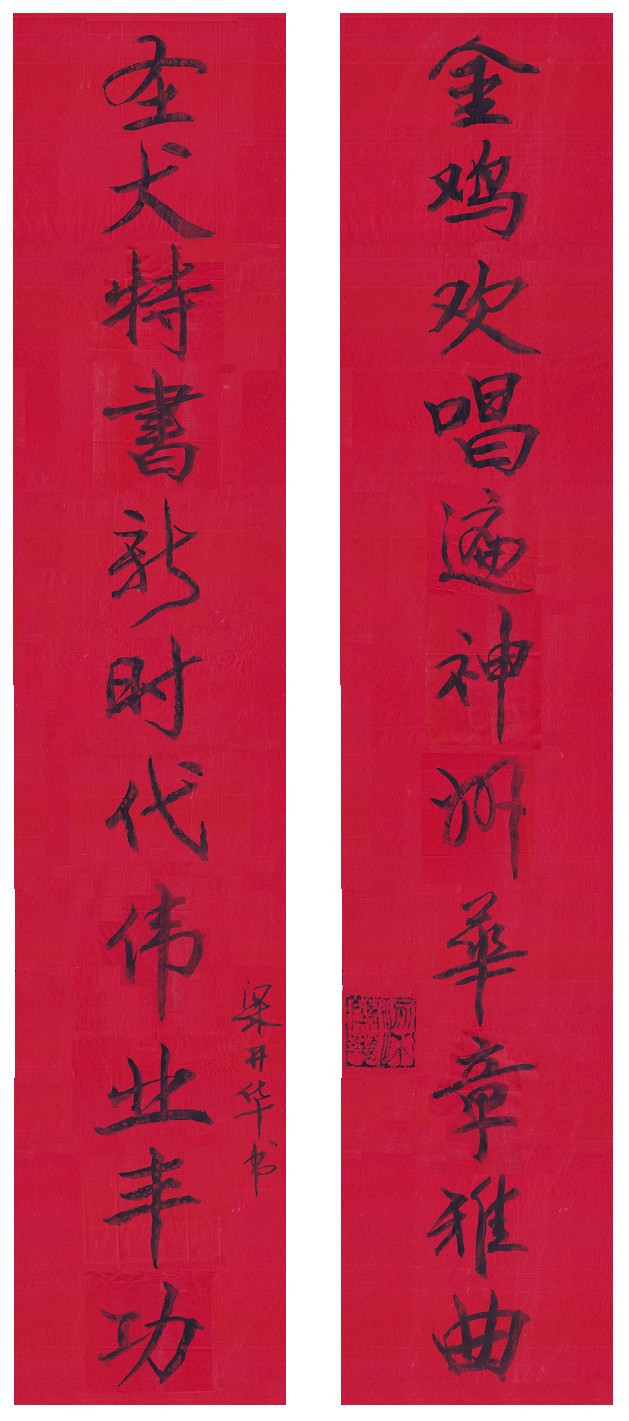 金鸡欢唱遍神州華章雅曲
圣犬特書新时代伟业丰功
梁开华书